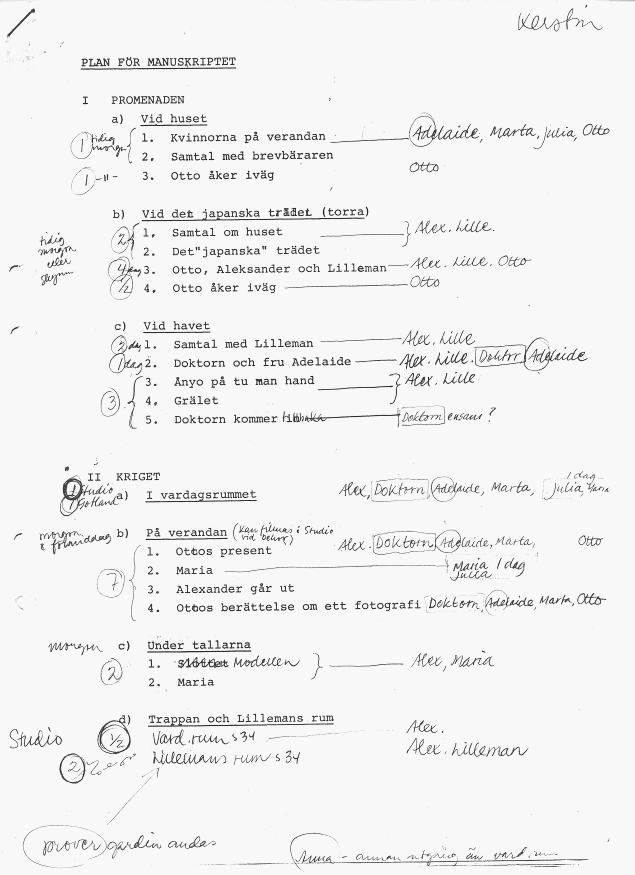 Kerstin
PLAN FÖR MANUSKRIPTET
I PROMENADEN
a) Vid huset
1 tidig morgon 1. Kvinnorna på verandan Adelaide, Marta, Julia, Otto
2. Samtal med brevbäraren
1 -"- 3. Otto åker iväg Otto
b) Vid det japanska trädet (torra)
2 1. Samtal om huset Alex. Lille.
tidig morgon eller
2. Det"japanska" trädet
4 dag 3. Otto, Aleksander och Lilleman Alex. Lille. Otto
1/2 4. Otto åker iväg Otto
c) Vid havet
2 dag 1. Samtal med Lilleman Alex. Lille
1 dag 2. Doktorn och fru Adelaide Alex. Lille. Doktorn Adelaide
3 3. Anyo på tu man hand Alex. Lille
4. Grälet
5. Doktorn kommer tillbaka Doktorn ensam?
II KRIGET
1 Studio
1 Gotland a) I vardagsrummet Alex, Doktorn Adelaide, Marta, 1 dag Julia, Maria
morgon & förmiddag b) På verandan (kan filmas i Studio vid behov)
1. Ottos present Alex. Doktorn Adelaide, Marta, Otto
7 2. Maria Maria 1 dag
Julia
3. Alexander går ut
4. Ottos berättelse om ett fotografi Doktorn, Adelaide, Marta, Otto
morgon c) Under tallarna
2 1. Slottet Modellen Alex, Maria
2. Maria
d) Trappan och Lillemans rum
Studio 1/2 Vard.rum s 34 Alex.
2 Lillemans rum s 34 Alex. Lilleman
prover gardin andas
Anna - annan utgång än vard.rum